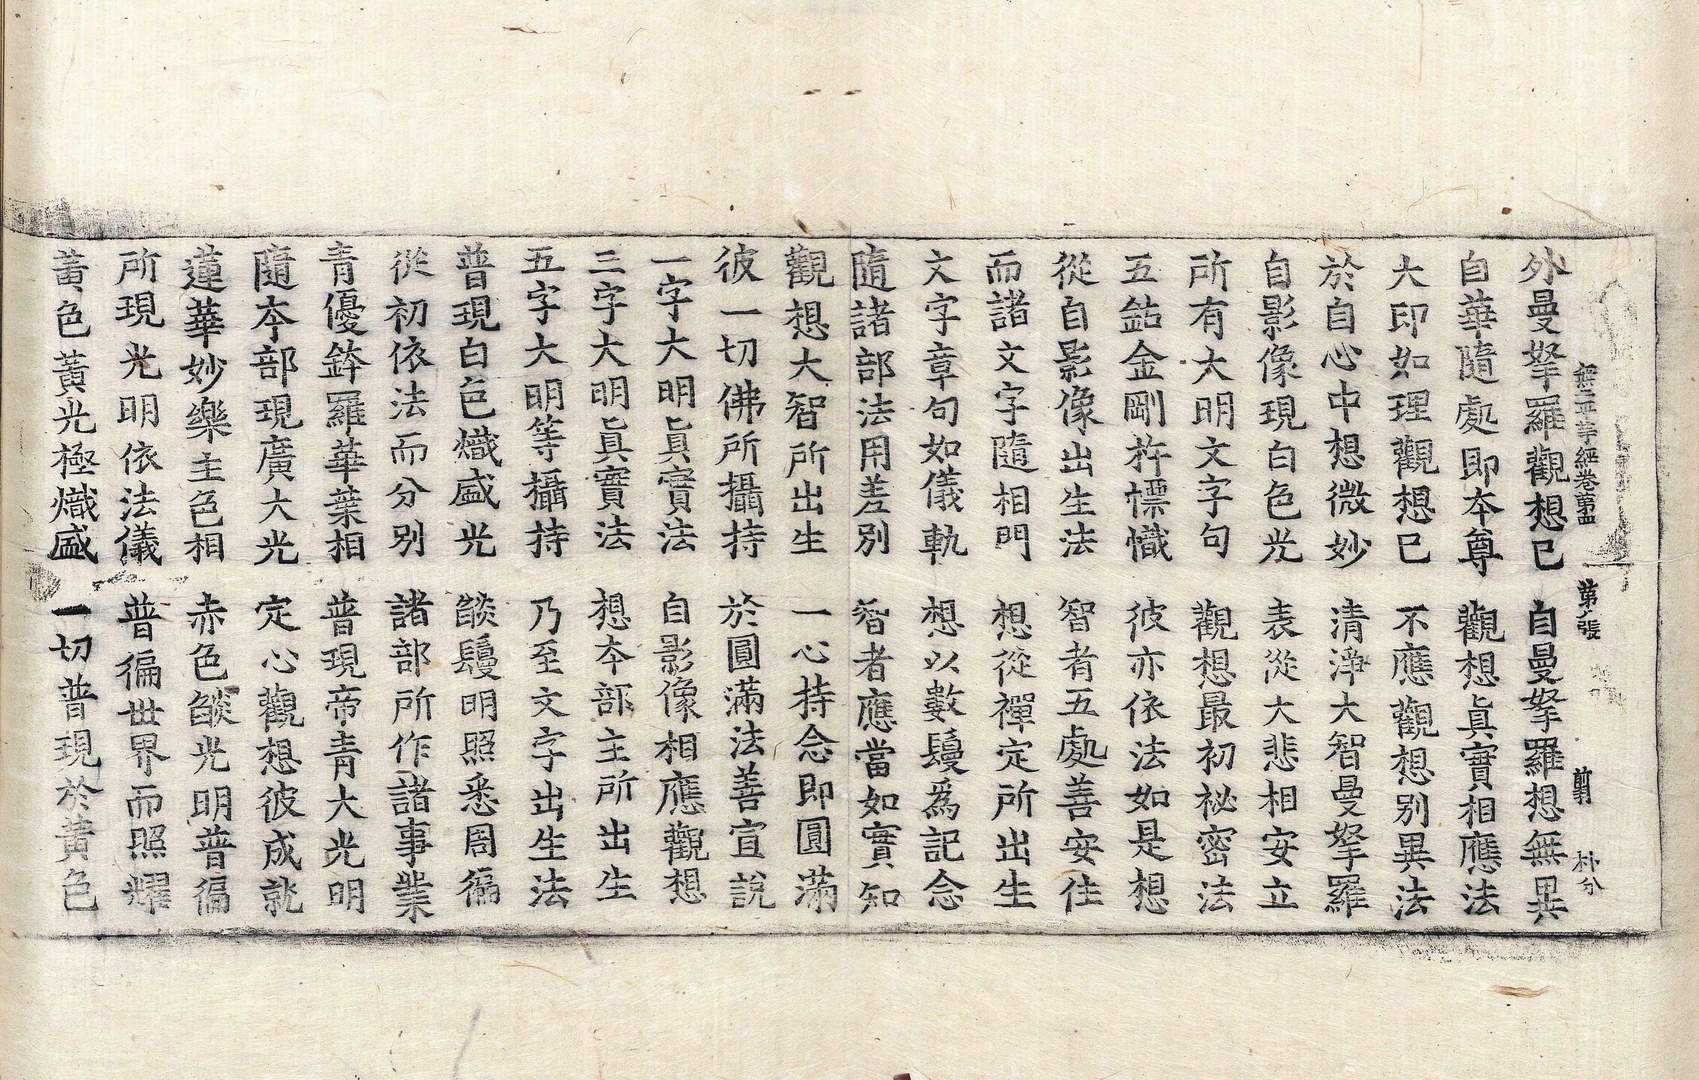 無二平等經卷第四 第六張 剪 朴分
外曼拏羅觀想已 自曼拏羅想無異
自華隨處即本尊 觀想眞實相應法
大印如理觀想已 不應觀想別異法
於自心中想微妙 清淨大智曼拏羅
自影像現白色光 表從大悲相安立
所有大明文字句 觀想最初祕密法
五鈷金剛杵慓幟 彼亦依法如是想
從自影像出生法 智者五處善安住
而諸文字隨相門 想從禪定所出生
文字章句如儀軌 想以數鬘爲記念
隨諸部法用差別 智者應當如實知
觀想大智所出生 一心持念即圓滿
彼一切佛所攝持 於圓滿法善宣說
一字大明眞實法 自影像相應觀想
三字大明眞實法 想本部主所出生
五字大明等攝持 乃至文字出生法
普現白色熾盛光 燄鬘明照悉周徧
從初依法而分別 諸部所作諸事業
青優鉢羅華葉相 普現帝青大光明
隨本部現廣大光 定心觀想彼成就
蓮華妙樂主色相 赤色燄光明普徧
所現光明依法儀 普徧世界而照耀
黃色黃光極熾盛 一切普現於黃色